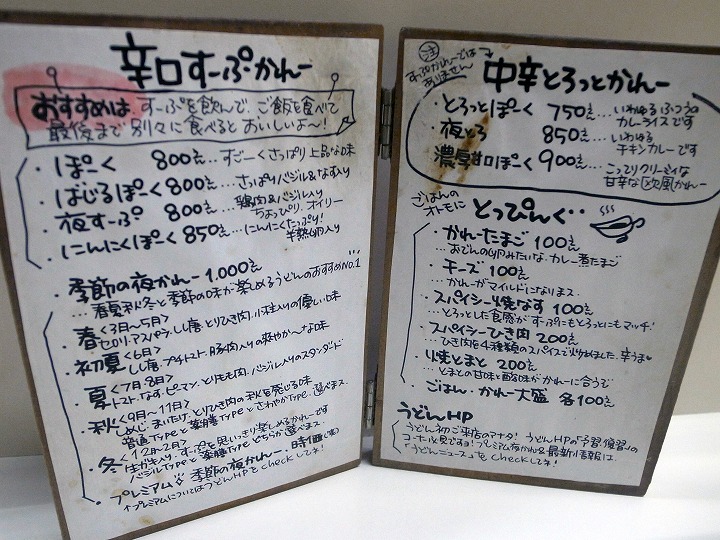 辛口すーぷかれー
おすすめは、すーぷを飲んで、ご飯を食べて
最後まで別々に食べるとおいしいよ〜！
・ぽーく 800えん…すごーくさっぱり上品な味
・ばじるぽーく 800えん…さっぱりバジル&なす入り
・夜すーぷ 800えん…鶏肉&バジル入り
ちょっぴりオイリー
・にんにくぽーく 850えん…にんにくたっぷり！
半熟卵入り
・季節の夜かれー 1,000えん
…春夏秋冬と季節の味が楽めるうどんのおすすめNO.1
春<3月〜5月>
セロリ、アスパラ、しし唐、とりひき肉
初夏<6月>
しし唐、プチトマト、豚肉入りの爽やか〜な味
夏<7月8月>
トマト、なす、ピーマン、とりもも肉、バジル入りのスタンダード
秋<9月〜11月>
しめじ、まいたけ、とりひき肉の秋を感じる味
普通Typeと薬膳Typeとさわやか Type、選べます。
・冬<12月〜2月>
バジルTypeと薬膳Typeどちらか選べます。
・プレミアム 季節の夜かれー・時価
↑プレミアムについてはうどんHPをcheckしてネ！
注
すーぷかれーでは
ありません
中辛とろっとかれー
・とろっとぽーく 750えん…いわゆるふつうの
カレーライスです
・夜とろ 850えん…いわゆる
チキンカレーです
・濃厚甘口ぽーく 900えん…こってりクリーミィな
甘辛な欧風かれー
ごはんの
オトモに
とっぴんぐ・・
・かれーたまご 100えん
…おでんの卵みたいな、カレー煮たまご
・チーズ 100えん
…かれーがマイルドになりまス
・スパイシー焼なす 100えん
…とろっとした食感がすーぷにもとろっとにもマッチ！
・スパイシーひき肉 200えん
…ひき肉を4種類のスパイスで炒めました、辛うま♥
・焼とまと 200えん
…とまとの甘味と酸味がかれーに合うで
・ごはん・かれー大盛 各100えん
うどんHP
うどん初ご来店のアナタ！うどんHPの予習復習の
コーナー見てネ！プレミアム夜かれー&最新情報は、
「うどんニュース」をCheckしてネ！